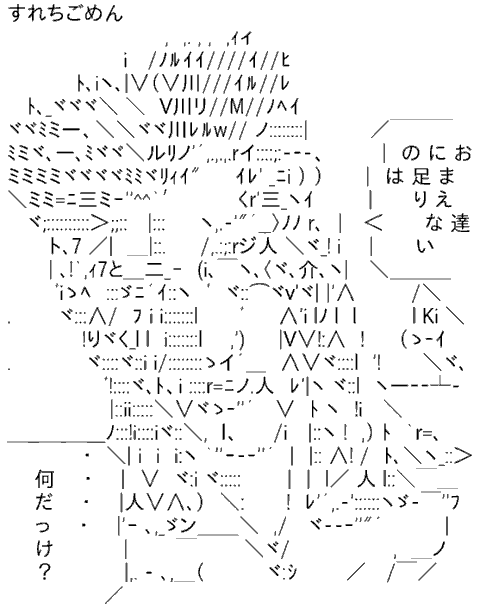 すれちごめん
おまえ達
に足りない
のは
・・・
何だっけ？